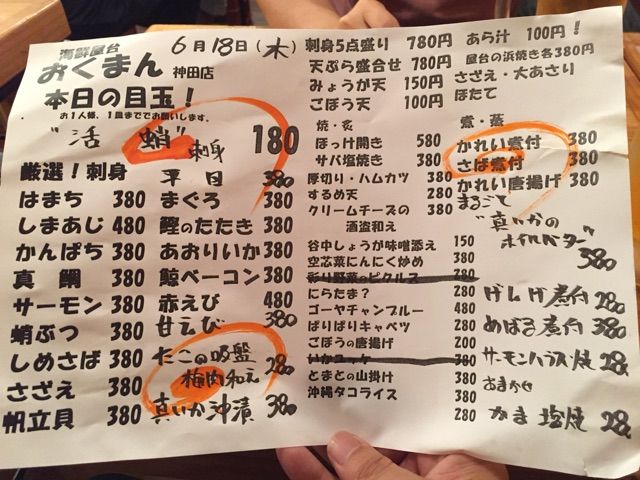 海鮮屋台
おくまん 神田店
6月18日(木)
本日の目玉!
お1人様、1皿まででお願いします。
"活 蛸" 刺身 180
厳選!刺身
はまち 380
しまあじ 480
かんぱち 380
真鯛 380
サーモン 380
蛸ぶつ 380
しめさば 380
さざえ 380
帆立貝 380
平目 380
まぐろ 380
鰹のたたき 380
あおりいか 380
鯨ベーコン 380
赤えび 480
甘えび 380
たこの吸盤
梅肉和え 280
真いか沖漬 380
刺身5点盛り 780円
天ぷら盛合せ 780円
みょうが天 150円
ごぼう天 100円
焼・炙
ほっけ開き 580
サバ塩焼き 380
厚切り・ハムカツ 380
するめ天 280
クリームチーズの 380
酒盗和え
谷中しょうが味噌添え 150
空芯菜にんにく炒め 380
彩り野菜のピクルス 280
にらたま? 280
ゴーヤチャンプルー 480
ぱりぱりキャベツ 280
ごぼうの唐揚げ 200
いかユッケ 380
とまとの山掛け 380
沖縄タコライス 380
280
あら汁 100円!
屋台の浜焼き各380円
さざえ・大あさり
ほたて
煮・蒸
かれい煮付 380
さば煮付 380
かれい唐揚げ 380
まるごと
"真いかの
ホイルバター"
380
げそげ煮付 280
めばる煮付 380
サーモンハラス焼 280
かま塩焼 280